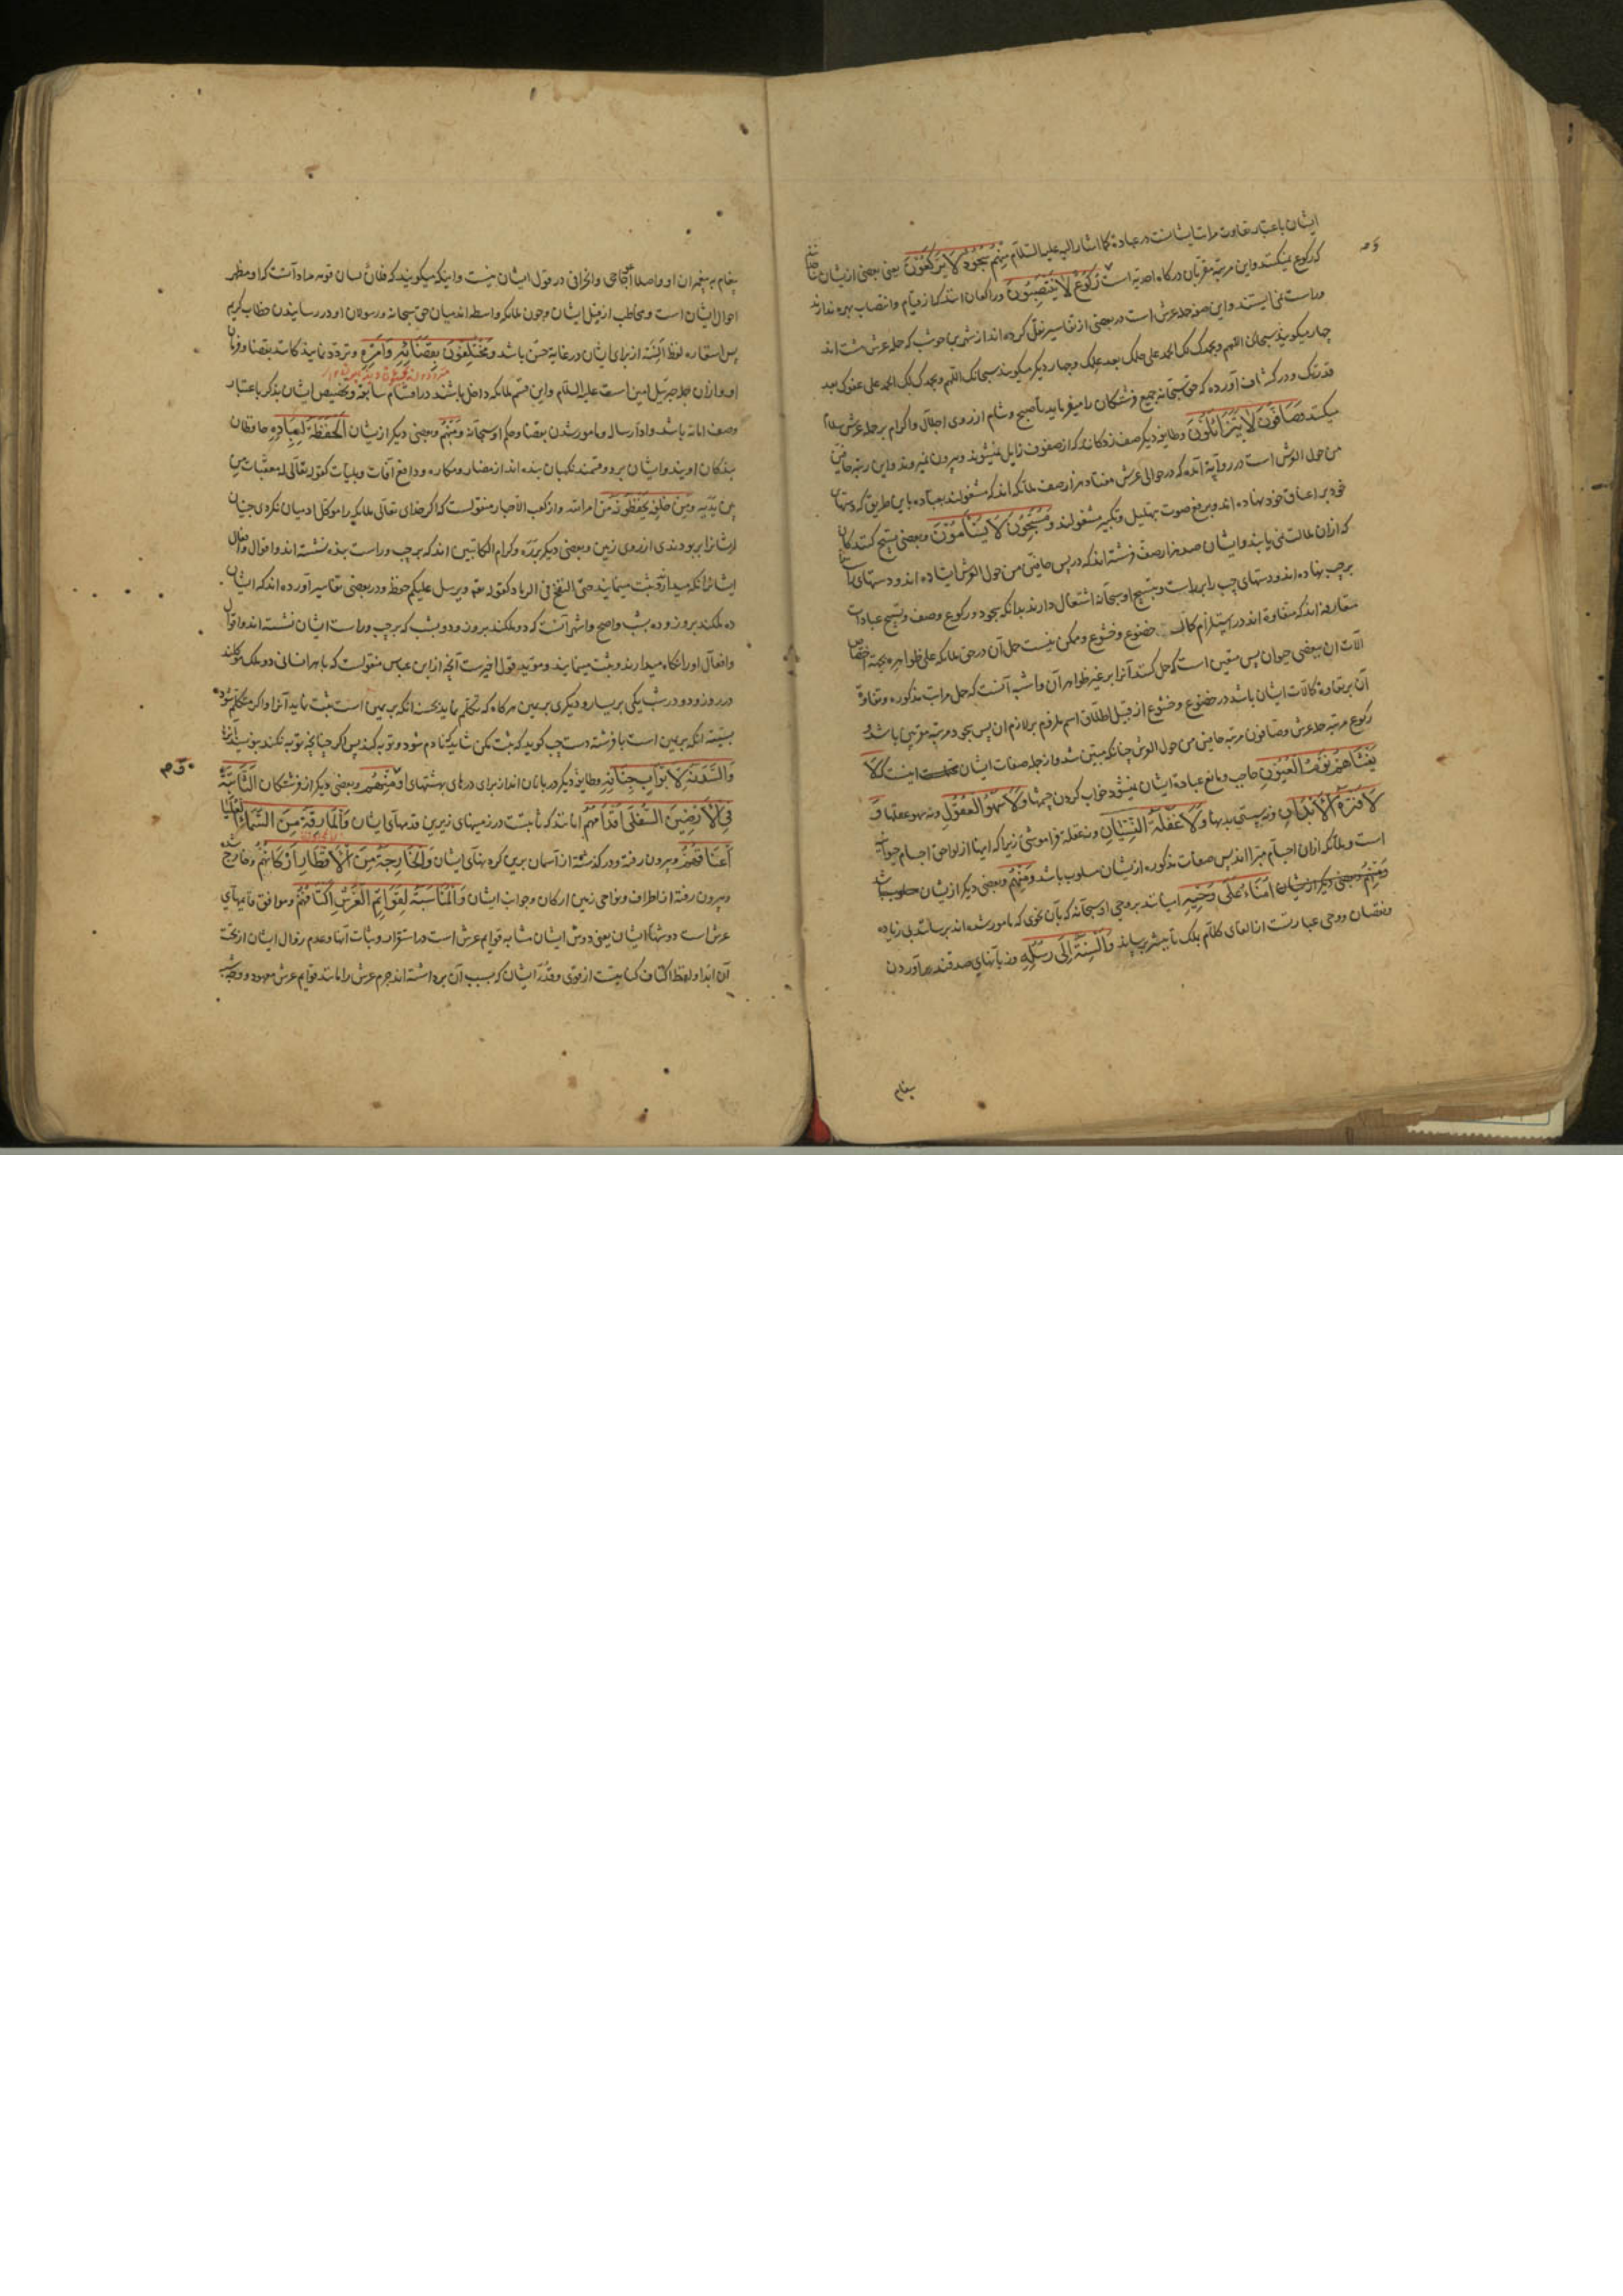 ایشان باعتبار تفاوت مراتب ایشانست در عبادة کما اشار الیه علیه السّلام مِنْهُمْ سُجُودٌ لَا يَرْكَعُونَ یعنی بعضی از ایشان
که رکوع نمیکنند و این مرتبهٔ مقرّبان درکاه احدیه است وَرُكُوعٌ لَا يَنْتَصِبُونَ و راکعان اند که از قیام و انتصاب بهره ندارند
و راست نمی ایستند و این صفة حملهٔ عرش است در بعضی از تفاسیر نقل کرده اند از شهر بن حوشب که حملهٔ عرش هشت اند
چهار میکویند سبحانک اللهم وبحمدک لک الحمد علی حلمک بعد علمک و چهار دیکر میکویند سبحانک اللهم وبحمدک لک الحمد علی عفوک بعد
قدرتک و در کشاف آورده که حق سبحانه جمیع فرشتکان را میفرماید تا صبح و شام از روی اجلال و اکرام بر حملهٔ عرش سلام
میکنند وَصَافُّونَ لَا يَتَزَايَلُونَ و طایفهٔ دیکر صف زدکانند که از صفوف زایل نمیشوند و بیرون نمیروند و این رتبهٔ حافین
من حول العرش است در روایة آمده که در حوالی عرش هفتاد هزار صف ملائکه اند که مشغولند بعبادة باین طریق که دستهای
خود بر اعناق خود نهاده اند و برفع صوت بتهلیل و تکبیر مشغولند وَمُسَبِّحُونَ لَا يَسْأَمُونَ و بعضی تسبیح کنندکان
که از آن ملالت نمی یابند و ایشان صد هزار صف فرشته اند که در پس حافین من حول العرش ایستاده اند و دستهای راست
بر چپ نهاده اند و دستهای چپ را بر راست و بتسبیح او سبحانه اشتغال دارند بدانکه سجود و رکوع و صف و تسبیح عبادات
متعارفه اند که متفاوته اند در استلزام کمال خضوع و خشوع و ممکن نیست حمل آن در حق ملائکه علی ظواهره بجهة اختصاص
آلات آن ببعضی حیوان پس متعین است که حمل کنند آنرا بر غیر ظواهر آن و اشبه آنست که حمل مراتب مذکوره و تفاوة
آن بر تفاوة کمالات ایشان باشد در خضوع و خشوع از قبیل اطلاق اسم ملزوم بر لازم آن پس سجود مرتبهٔ مقربین باشد و
رکوع مرتبهٔ حملهٔ عرش و صافون مرتبهٔ حافین من حول العرش چنانکه مبین شد و از جمله صفات ایشان اینست که لَا
يَغْشَاهُمْ نَوْمُ الْعُيُونِ حاجب و مانع عبادة ایشان نمیشود خواب کردن چشمها وَلَا سَهْوُ الْعُقُولِ و نه سهو عقلها وَ
لَا فَتْرَةُ الْأَبْدَانِ و نه سستی بدنها وَلَا غَفْلَةُ النِّسْيَانِ و نه غفلة فراموشی زیرا که اینها از لواحق اجسام حیوانیه
است و ملائکه از آن اجسام مبرّا اند پس صفات مذکوره از ایشان مسلوب باشد وَمِنْهُمْ و بعضی دیکر از ایشان
أُمَنَاءُ عَلَى وَحْيِهِ امینانند بر وحی او سبحانه که بآن نحوی که مامور شده اند برسانند بی زیاده
و نقصان و وحی عبارتست از القای کلام بملک تا به بشر برساند وَأَلْسِنَةٌ إِلَى رُسُلِهِ و زبانهای صدقند برآوردن
پیغام
پیغام به پیغمبران او و اصلا اعوجاجی و انحرافی در قول ایشان نیست و اینکه میکویند که فلان لسان قومه مراد آنست که او مظهر
احوال ایشان است و مخاطب از قبل ایشان و چون ملائکه واسطه اند میان حق سبحانه و رسولان او در رسانیدن خطاب کریم
پس استعاره لفظ السنه از برای ایشان در غایة حسن باشد وَمُخْتَلِفُونَ بِقَضَائِهِ وَأَمْرِهِ و تردّد نمایندکانند بقضا و فرمان
او و از آن جمله جبرئیل امین است علیه السّلام و این قسم ملائکه داخل باشند در اقسام سابقه و تخصیص ایشان بذکر باعتبار
وصف امانة باشد و اداء رسالة و مامور شدن بقضا و حکم او سبحانه وَمِنْهُمُ و بعضی دیکر از ایشان الْحَفَظَةُ لِعِبَادِهِ حافظان
بندکان اویند و ایشان بر دو قسمند نکهبان بنده اند از مضار و مکاره و دافع آفات و بلیات کقوله تعالی له معقّبات من
بین یدیه ومن خلفه یحفظونه من امر الله و از کعب الاحبار منقولست که اکر خدای تعالی ملائکه را موکل آدمیان نکردی جنیان
ایشانرا بربودندی از روی زمین و بعضی دیکر برره و کرام الکاتبین اند که بر چپ و راست بنده نشسته اند و اقوال و افعال
ایشانرا نکه میدارند و ثبت مینمایند حتی النفخ فی الرماد کقوله تع و یرسل علیکم حفظة و در بعضی تفاسیر آورده اند که ایشان
ده ملکند بروز و ده بشب و اصح و اشهر آنست که دو ملکند بروز و دو بشب که بر چپ و راست ایشان نشسته اند و اقوال
و افعال او را نکاه میدارند و ثبت مینمایند و مؤید قول اخیرست آنچه از ابن عباس منقولست که با هر انسانی دو ملک موکلند
در روز و دو در شب یکی بر یسار و دیکری بر یمین هرکاه که تکلم نماید بحسنه آنکه بر یمین است ثبت نماید آنرا و اکر متکلم شود
بسیئه آنکه بر یمین است با فرشتهٔ دست چپ کوید که ثبت مکن شاید که نادم شود و توبه کند پس اکر چنانچه توبه نکند بنویسد آنرا
وَالسَّدَنَةُ لِأَبْوَابِ جِنَانِهِ و طایفهٔ دیکر دربانان اند از برای درهای بهشتهای او وَمِنْهُمُ و بعضی دیکر از فرشتکان الثَّابِتَةُ
فِي الْأَرَضِينَ السُّفْلَى أَقْدَامُهُمْ آنانند که ثابتست در زمینهای زیرین قدمهای ایشان وَالْمَارِقَةُ مِنَ السَّمَاءِ الْعُلْيَا
أَعْنَاقُهُمْ و بیرون رفته و درکذشته از آسمان برین کردنهای ایشان وَالْخَارِجَةُ مِنَ الْأَقْطَارِ أَرْكَانُهُمْ و خارج شده
و بیرون رفته از اطراف و نواحی زمین ارکان و جوانب ایشان وَالْمُنَاسِبَةُ لِقَوَائِمِ الْعَرْشِ أَكْتَافُهُمْ و موافق قایمهای
عرش است دوشهای ایشان یعنی دوش ایشان مشابه قوایم عرش است در استقرار و ثبات آنها و عدم زوال ایشان از تحت
آن ابدا و لفظ اکتاف کنایتست از قوی و قدرة ایشان که بسبب آن برداشته اند جرم عرش را مانند قوایم عرش معهوده